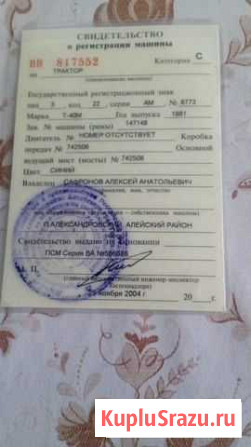 СВИДЕТЕЛЬСТВО
о регистрации машины
ВВ 817552 Категория С
ТРАКТОР
Государственный регистрационный знак
тип 3 код 22 серия АМ № 6773
Марка Т-40М Год выпуска 1981
Зав. № машины (рамы) 147148
Двигатель № НОМЕР ОТСУТСТВУЕТ Коробка
передач № 742506 Основной
ведущий мост (мосты) № 742506
Цвет СИНИЙ
Владелец САФРОНОВ АЛЕКСЕЙ АНАТОЛЬЕВИЧ
П.АЛЕКСАНДРОВСКИЙ, АЛЕЙСКИЙ РАЙОН
Свидетельство выдано на основании
ПСМ Серия ВА
М. П.
ноября 2004 г 20 г.
KupluSrazu.ru